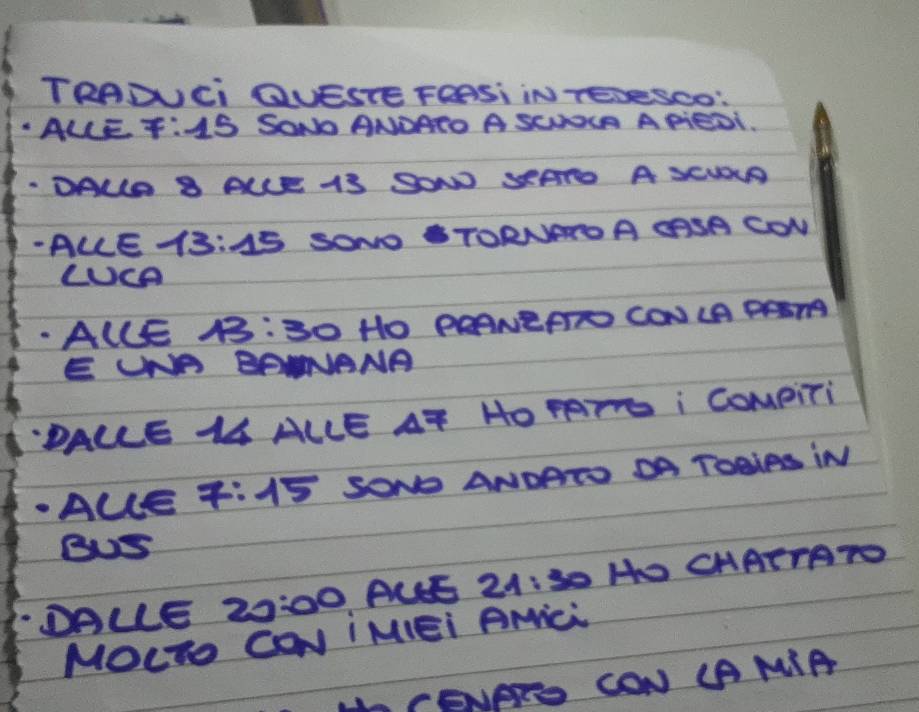 TRADUCI QUESTE FRASI IN TEDESCO:
• ALLE 7:15 SONO ANDATO A SCUOLA A PIEDI.
• DALLA 8 ALLE 13 SONO STATO A SCUOLA
• ALLE 13:15 SONO TORNATO A CASA CON
LUCA
• ALLE 13:30 HO PRANZATO CON LA PASTA
E UNA BANANA
• DALLE 14 ALLE 17 HO FATTO i COMPITI
• ALLE 7:15 SONO ANDATO DA TOBIAS IN
BUS
• DALLE 20:00 ALLE 21:30 HO CHATTATO
MOLTO CON i MIEI AMICI
HO CENATO CON LA MIA